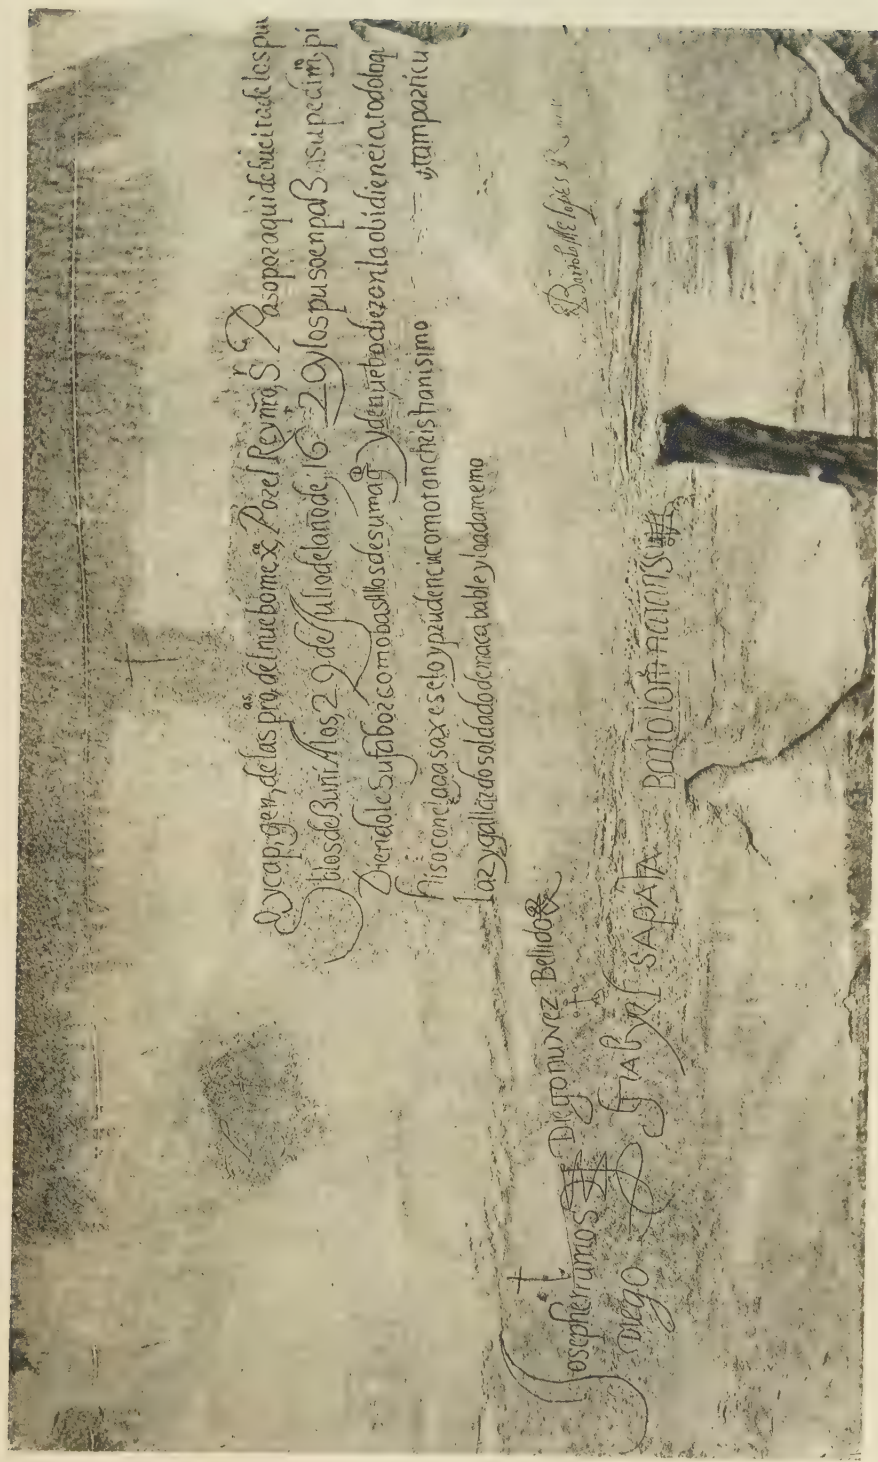 y cap, gen, de las proas del nuebo mexco, Por el Rey nro, Sr. Paso por aqui de buelta de los pue
blos de Zuñi A los, 29 de Julio del año de, 1620 y los puso en paz a su pedimto pi
diendole Su fabor como basallos de su magd y de nuebo dieron la obidiencia todo lo qe
hiso con el agasaxe selo y prudencia como tan christianisimo tam particu
lar y gallardo soldado de inacabable y loada memo
Bartolome
Joseph ramos Diego nunez Bellido
Diego Gabryel sapata Bartolome naranso